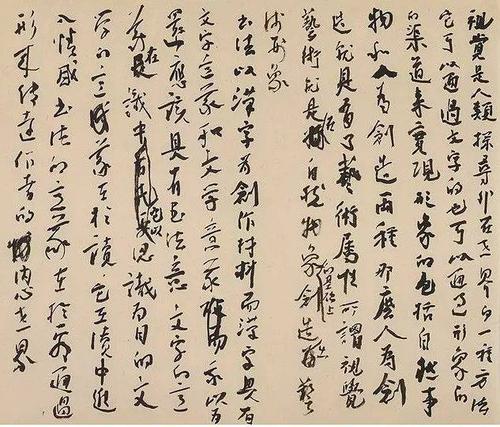 視覺是人類探尋外在世界的一種方法
它可以通過文字的也可以通過形象的
的渠道來實現形象的包括自然事
物和人為創造兩種那麼人為創
造就具有了藝術屬性所謂視覺
藝術就是自然物象創造藝
術形象
書法以漢字為創作材料而漢字具有
文字意象和文字音象不以為
還應該具有書法意文字的意
象是在識中它以識為目的文
字的意象在於讀它在讀中進
入情感書法的意象在於看通過
形來傳達作者的內心世界